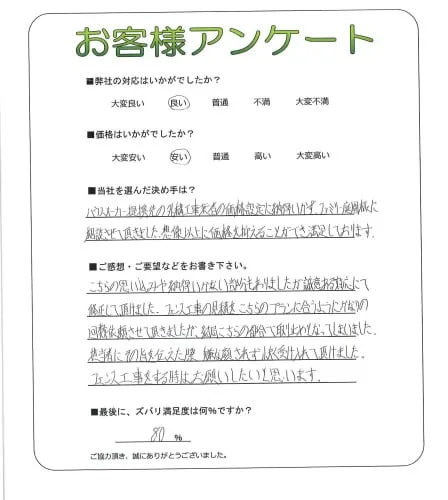 お客様アンケート
■弊社の対応はいかがでしたか?
大変良い 良い 普通 不満 大変不満
■価格はいかがでしたか?
大変安い 安い 普通 高い 大変高い
■当社を選んだ決め手は?
ハウスメーカー提携先の外構工事業者の価格設定に納得いかず、ファミリー庭園様に
相談させて頂きました。想像以上に価格を抑えることができ満足しております。
■ご感想・ご要望などをお書き下さい。
こちらの思い込みや納得いかない部分もありましたが誠意ある対応にて
修正して頂きました。フェンス工事の見積をこちらのプランに合うようにかなりの
回数依頼させて頂きましたが、結局こちらの都合で取り止めとなってしまいました。
担当者にその旨を伝えた際、嫌な顔されず受け入れて頂けました。
フェンス工事をする時はお願いしたいと思います。
■最後に、ズバリ満足度は何%ですか?
80 %
ご協力頂き、誠にありがとうございました。